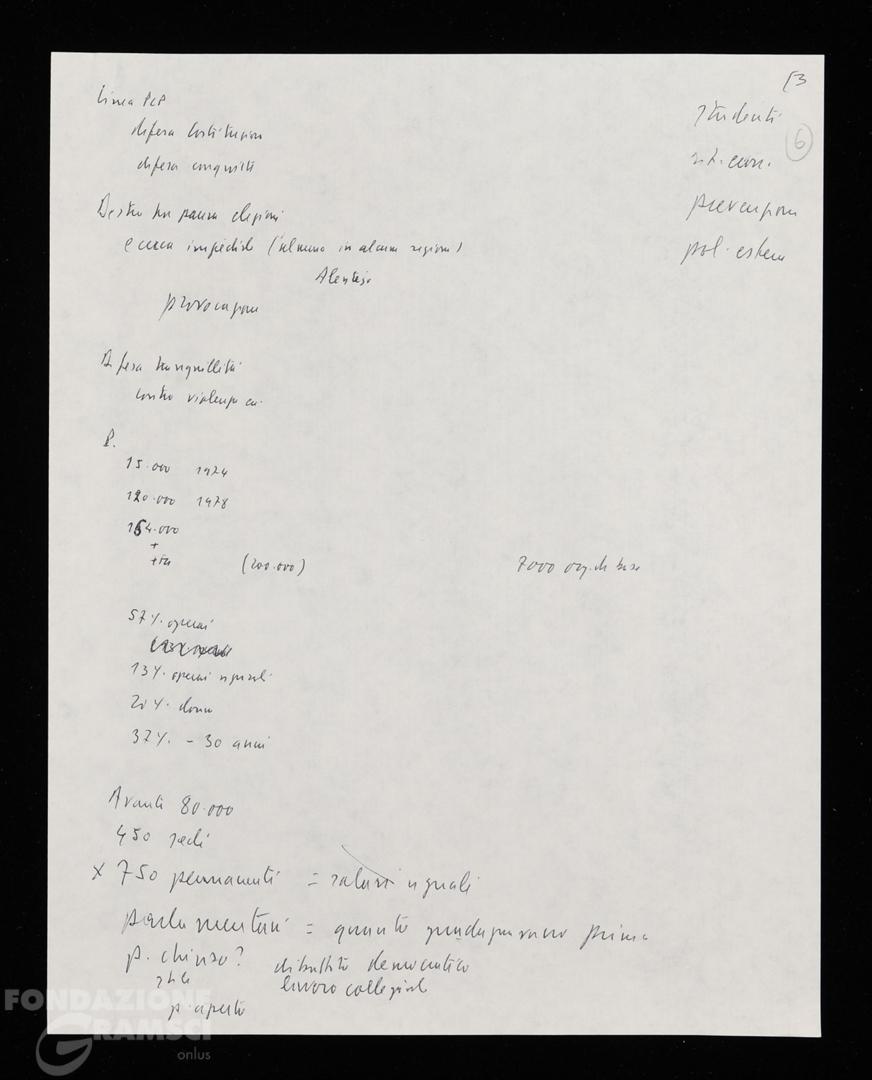 53
6
Linea PCP
difesa Costituzione
difesa conquiste
Destra ha paura elezioni
e cerca impedirle (almeno in alcune regioni)
Alentejo
provocazione
Difesa tranquillità
contro violenza
P.
15.000 1974
120.000 1978
164.000
+
(200.000) 7000 org. di base
57% operai
13% operai agricoli
20% donne
37% - 30 anni
Avanti 80.000
450 sedi
x 750 permanenti = salari uguali
parlamentari = quanto guadagnavano prima
p. chiuso? dibattito democratico
stile lavoro collegiale
p. aperto
studenti
sit. econ.
prevenzione
pol. estera
FONDAZIONE
GRAMSCI
onlus